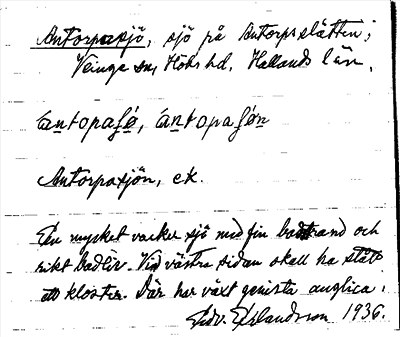 Antorpasjö, sjö på Antorpsslätten;
Veinge sn, Höks hd, Hallands län.
antopaʃø, antopaʃøn
Antorpasjön, ek.
En mycket vacker sjö med fin badstrand och
rikt badliv. Vid västra sidan skall ha stått
ett kloster. Där har växt genista anglica.
1936.